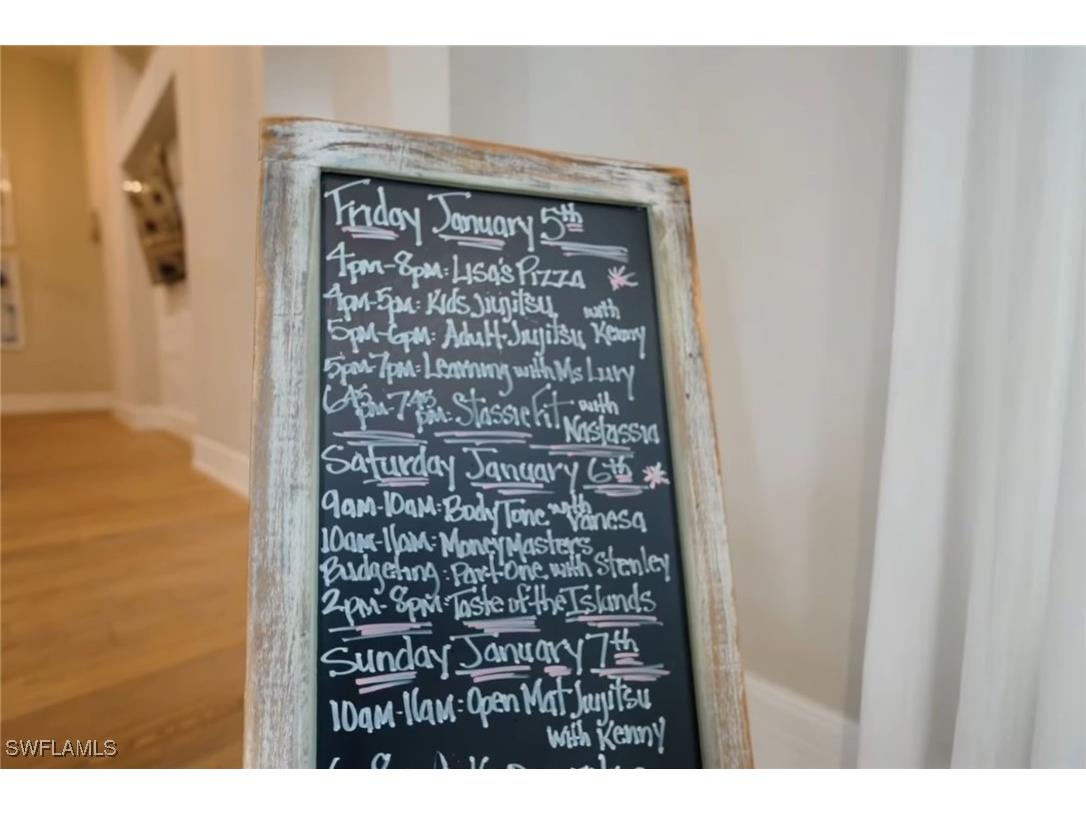 Friday January 5th
4pm-8pm: Lisa's Pizza
4pm-5pm: Kids Jiujitsu
5pm-6pm: Adult Jiujitsu with Kenny
5pm-7pm: Learning with Ms Lury
6:45pm-7:45pm: StassieFit with Nastassia
Saturday January 6th
9am-10am: Body Tone with Vanesa
10am-11am: Money Masters
Budgeting: Part-One with Stenley
2pm-8pm: Taste of the Islands
Sunday January 7th
10am-11am: Open Mat Jiujitsu
with Kenny
SWFLAMLS